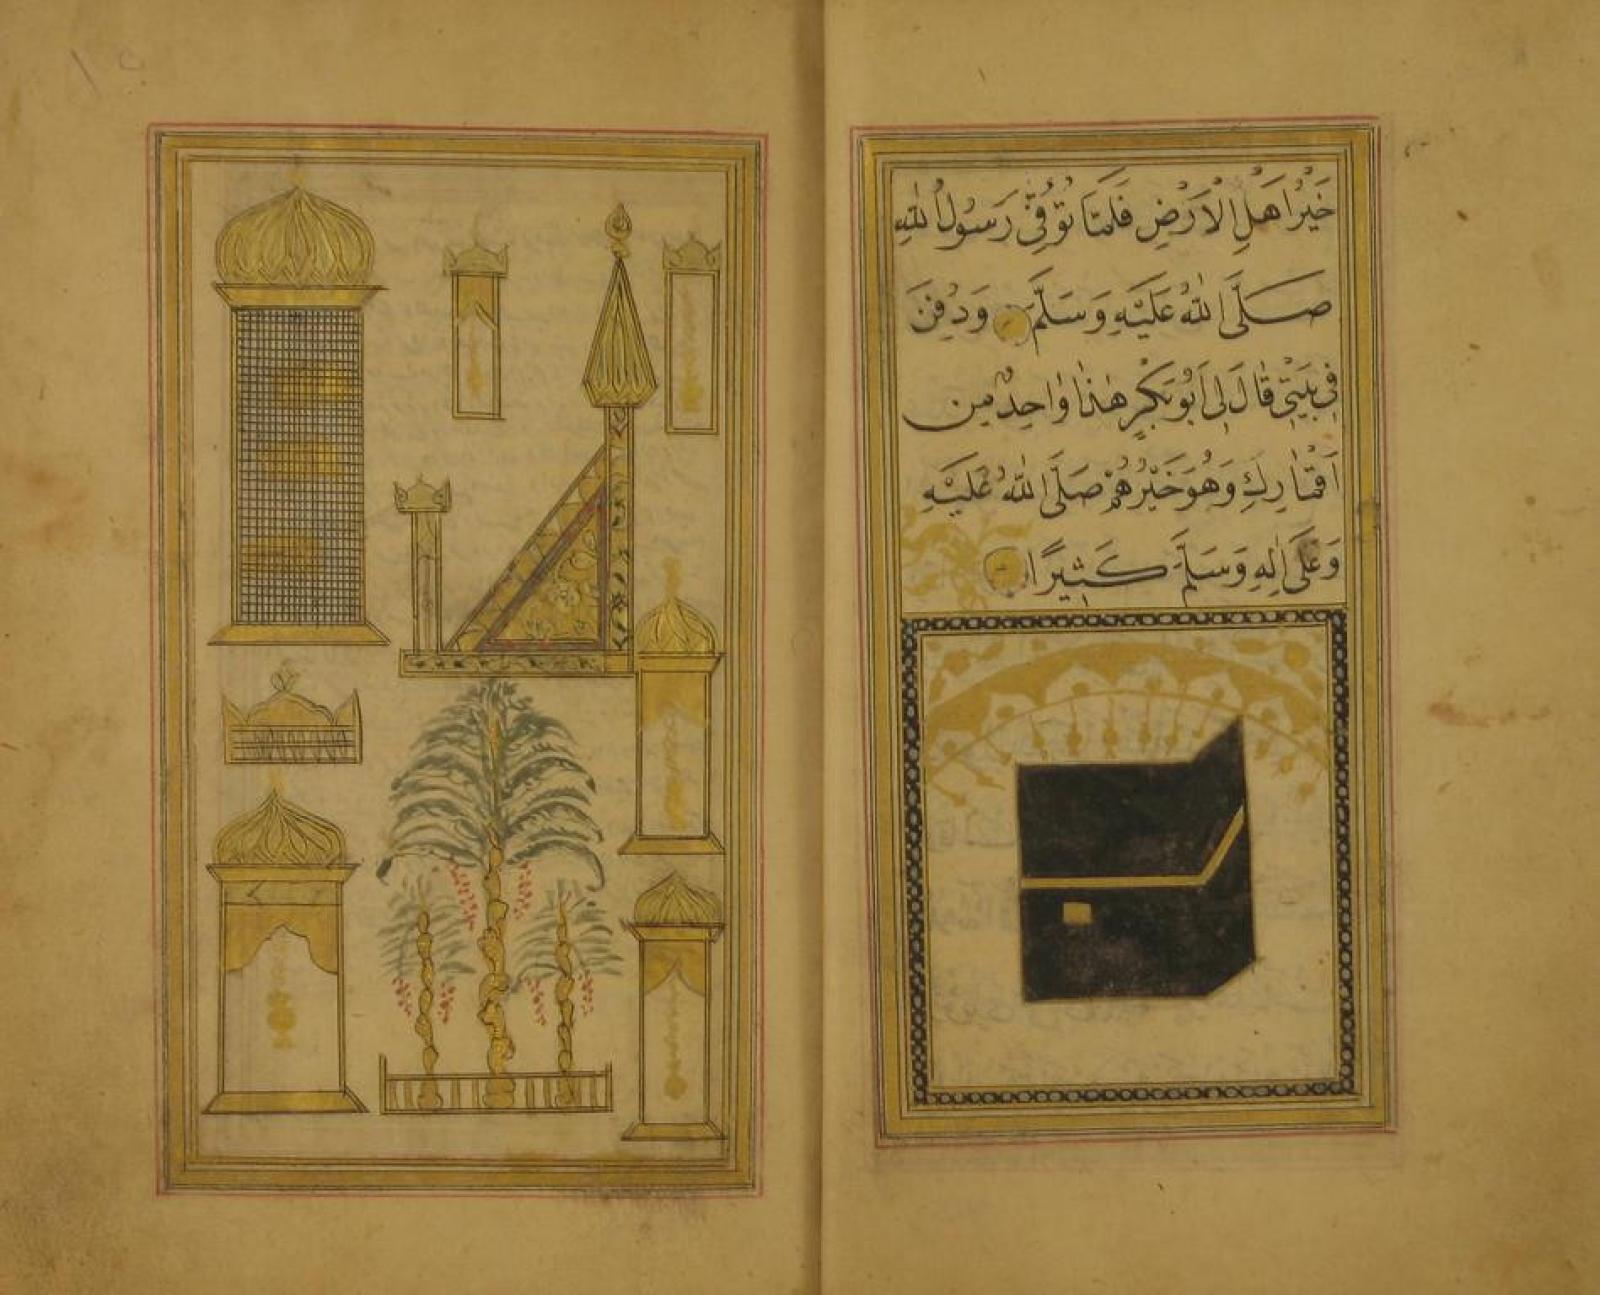 خَيْرُ اَهْلِ الْاَرْضِ فَلَمَّا تُوُفِّىَ رَسُولُ اللّٰهِ
صَلَّى اللّٰهُ عَلَيْهِ وَسَلَّمَ وَدُفِنَ
فِى بَيْتِى قَالَ لِى اَبُو بَكْرٍ هٰذَا وَاحِدٌ مِنْ
اَقْمَارِكِ وَهُوَ خَيْرُهُمْ صَلَّى اللّٰهُ عَلَيْهِ
وَعَلَى اٰلِهِ وَسَلَّمَ كَثِيرًا